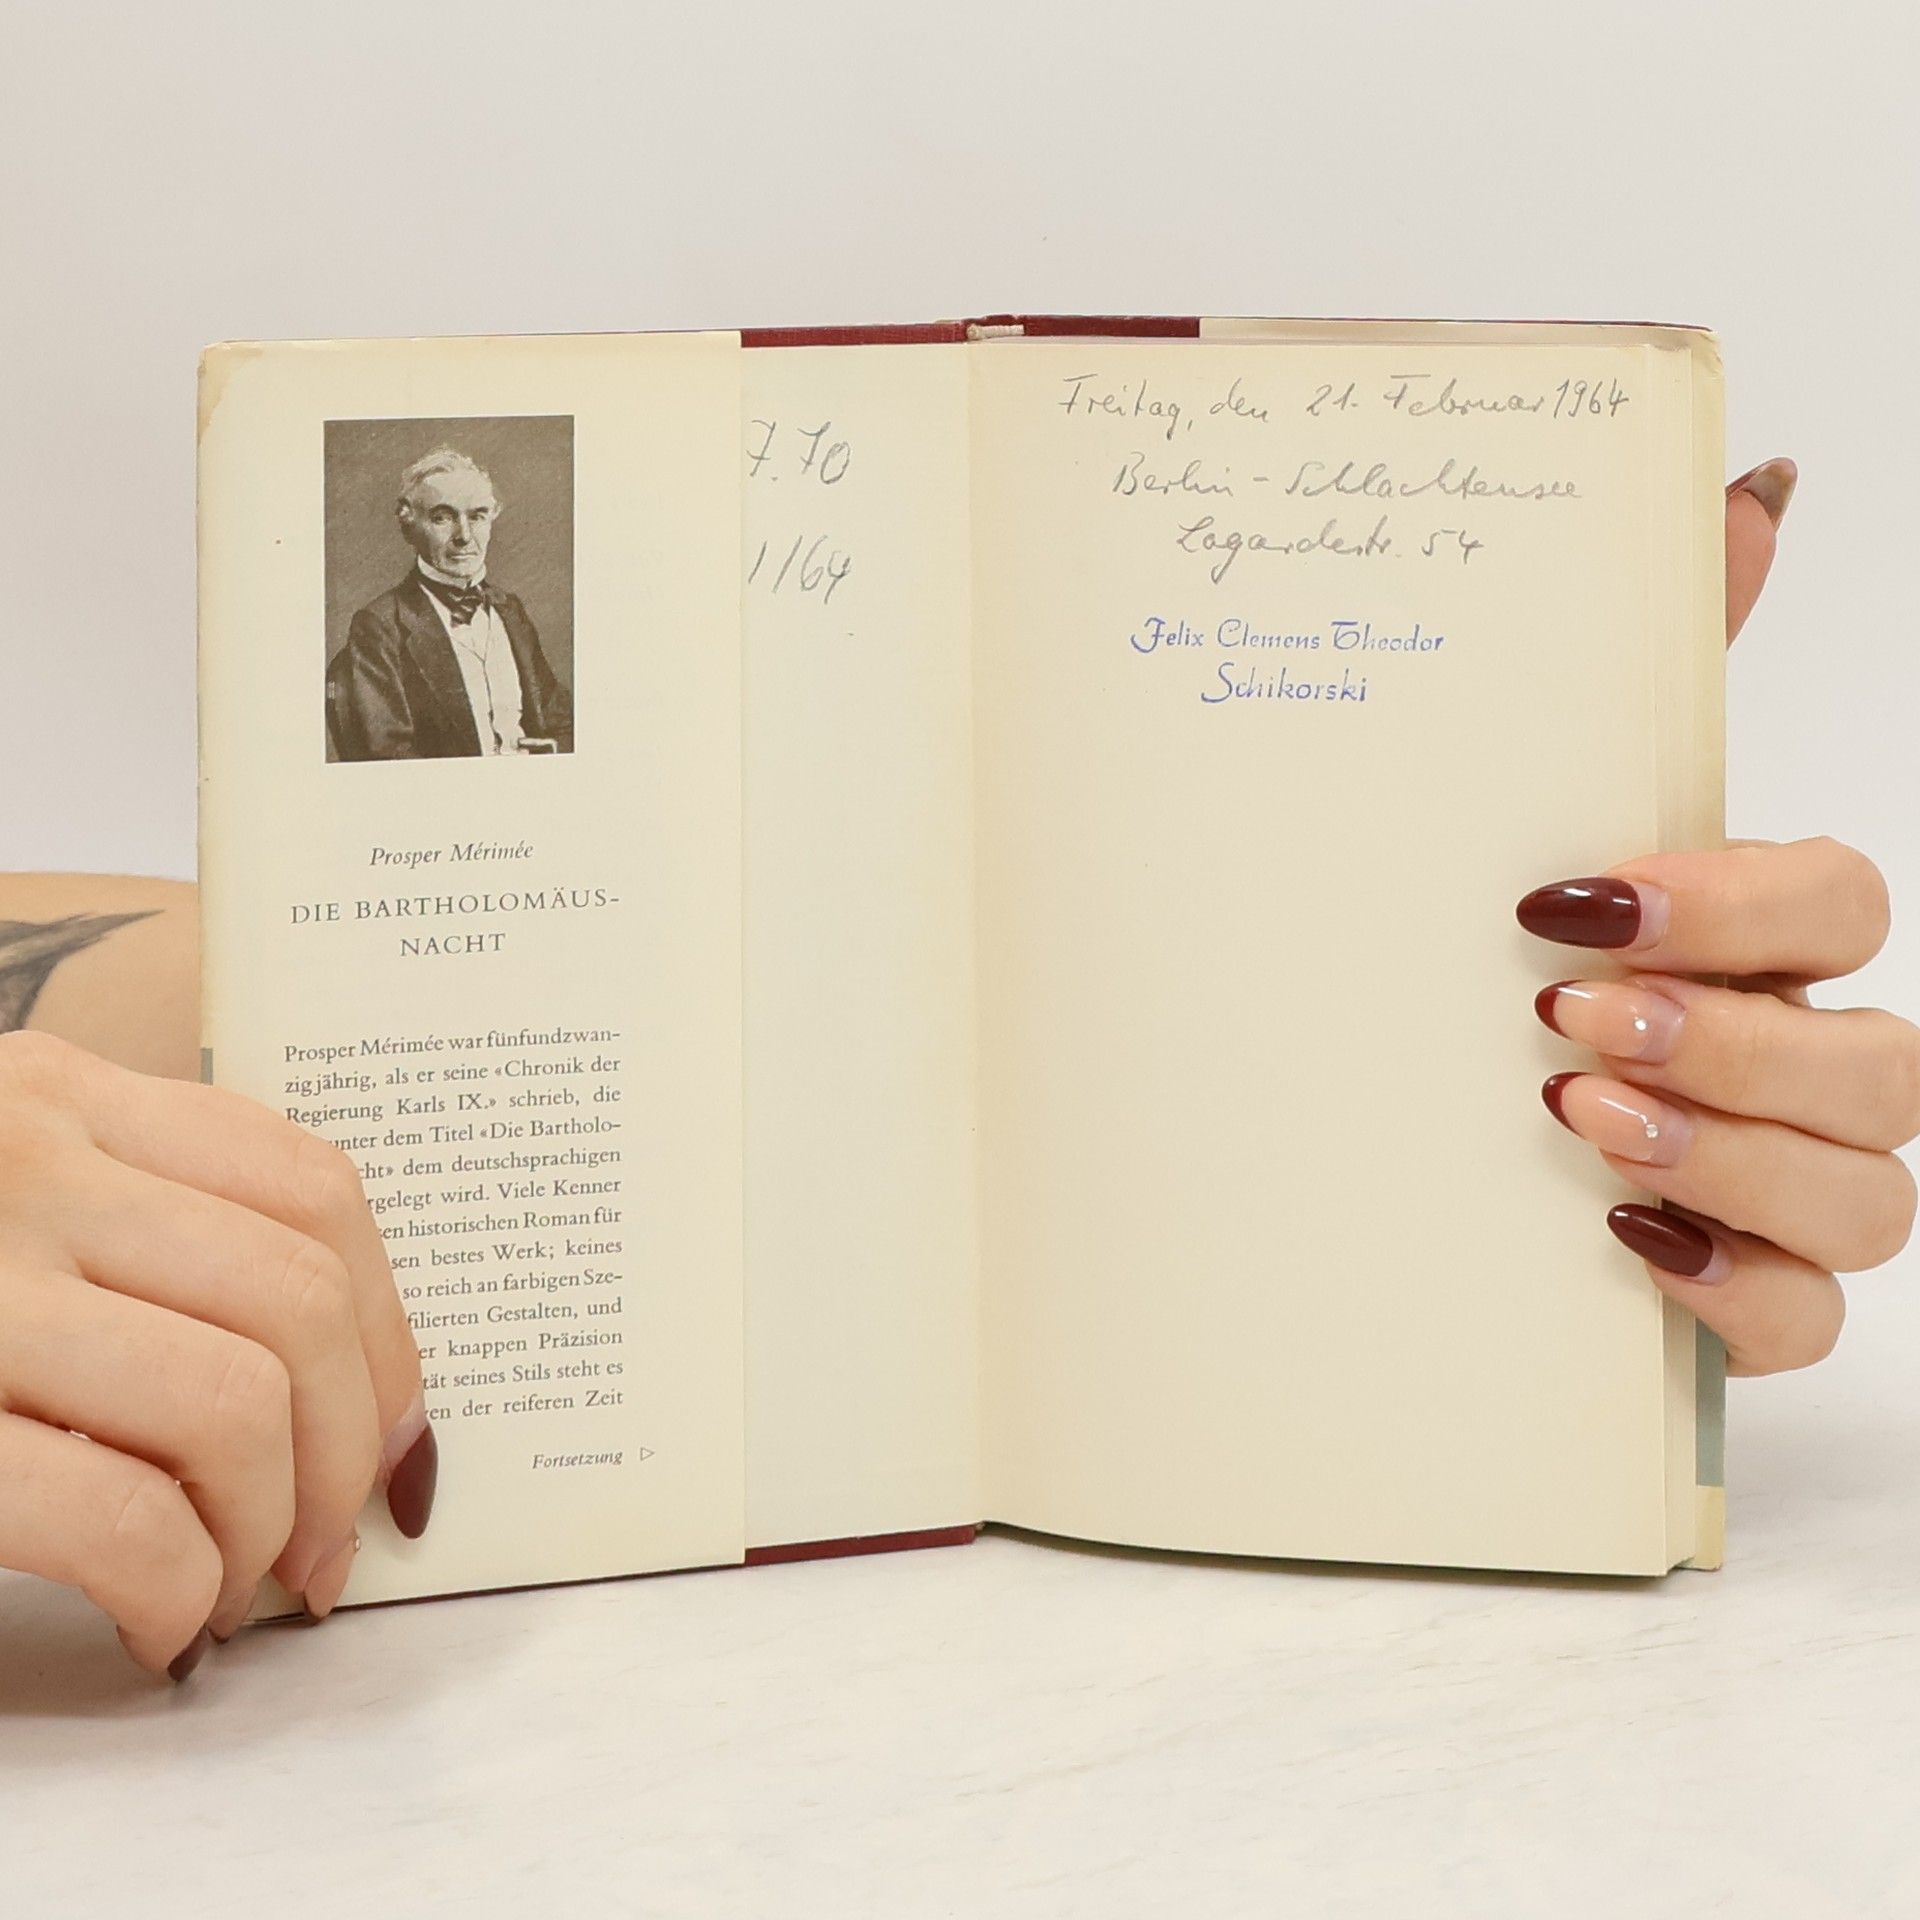 Prosper Mérimée
DIE BARTHOLOMÄUS-
NACHT
Prosper Mérimée war fünfundzwan-
zigjährig, als er seine «Chronik der
Regierung Karls IX.» schrieb, die
unter dem Titel «Die Bartholo-
cht» dem deutschsprachigen
rgelegt wird. Viele Kenner
en historischen Roman für
sen bestes Werk; keines
so reich an farbigen Sze-
filierten Gestalten, und
er knappen Präzision
tät seines Stils steht es
en der reiferen Zeit
Fortsetzung ▷
7.70
1/64
Freitag, den 21. Februar 1964
Berlin - Schlachtensee
Lagardestr. 54
Felix Clemens Theodor
Schikorski